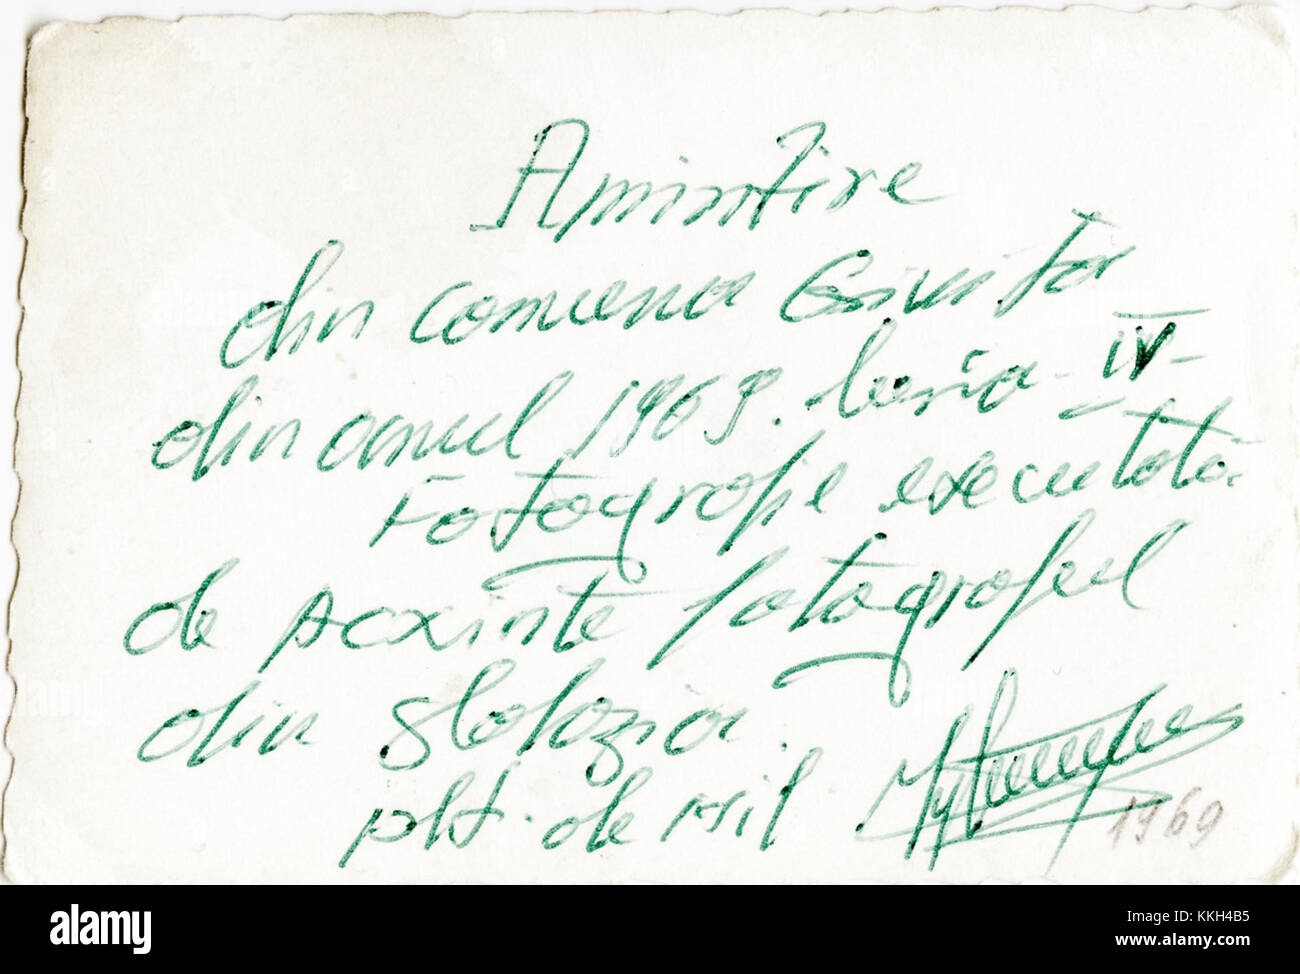 Amintire
din comuna
din anul 1969. luna - IV -
Fotografie executată
de Acxinte fotograful
din Slobozia.
plt. de mil
1969
alamy
Image ID: KKH4B5
www.alamy.com